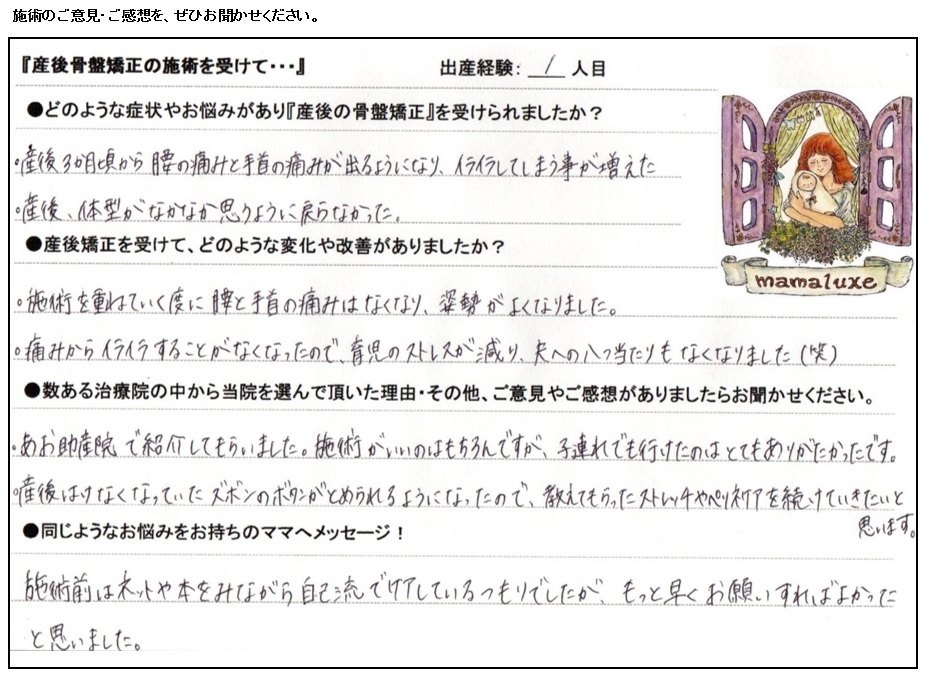 施術のご意見・ご感想を、ぜひお聞かせください。
『産後骨盤矯正の施術を受けて・・・』 出産経験： 1 人目
●どのような症状やお悩みがあり『産後の骨盤矯正』を受けられましたか？
・産後3か月頃から腰の痛みと手首の痛みが出るようになり、イライラしてしまう事が増えた
・産後、体型がなかなか思うように戻らなかった。
●産後矯正を受けて、どのような変化や改善がありましたか？
。施術を重ねていく度に腰と手首の痛みはなくなり、姿勢がよくなりました。
。痛みからイライラすることがなくなったので、育児のストレスが減り、夫への八つ当たりもなくなりました（笑）
mamaluxe
●数ある治療院の中から当院を選んで頂いた理由・その他、ご意見やご感想がありましたらお聞かせください。
・あお助産院で紹介してもらいました。施術がいいのはもちろんですが、子連れでも行けたのはとてもありがたかったです。
・産後はけなくなっていたズボンのボタンがとめられるようになったので、教えてもらったストレッチやペリネケアを続けていきたいと
思います。
●同じようなお悩みをお持ちのママへメッセージ！
施術前はネットや本をみながら自己流でケアしているつもりでしたが、もっと早くお願いすればよかった
と思いました。